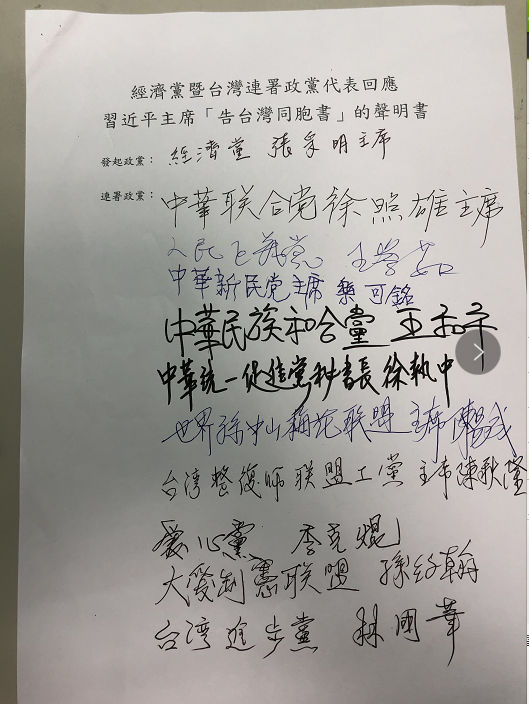 經濟黨暨台灣連署政黨代表回應
習近平主席「告台灣同胞書」的聲明書
發起政黨： 經濟黨 張采明主席
連署政黨： 中華联合党徐照雄主席
人民
中華新民党主席 可銘
中華民族和合黨 王和平
中華統一促進党秘書長徐執中
世界孫中山 联盟 主席陳
台湾整復师联盟工党 主席陳秋
爱心黨 李克焜
大愛制憲联盟 孫紹翰
台湾進步黨 林国華